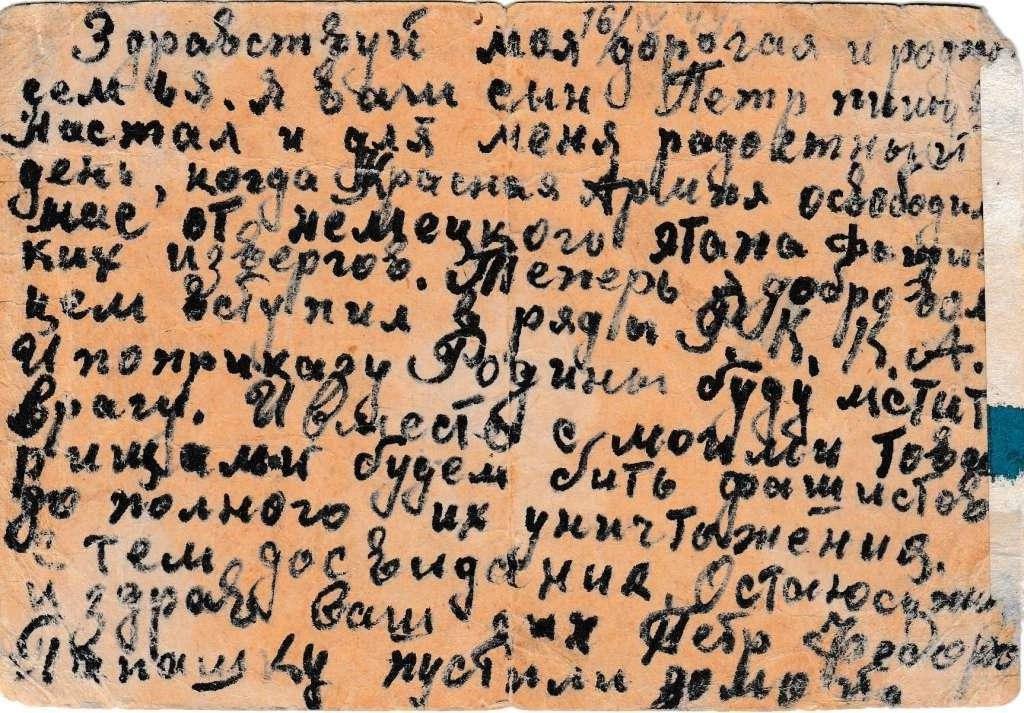 16/IV 44
Здравствуй моя дорогая и родная
семья. я ваш сын Петр пишу
Настал и для меня радостный
день, когда Красная Армия освободил
нас от немецкого
ких извергов. Теперь я добро вол
цем вступил в ряды Р. К. К. А.
И по приказу Родины буду мстит
врагу. И вместе с моими Това
рищами будем бить фашистов
до полного их уничтожения.
с тем досвидания. Остаюсь жив
и здрав Ваш сын Петр Федоро
Папашку пустили домой